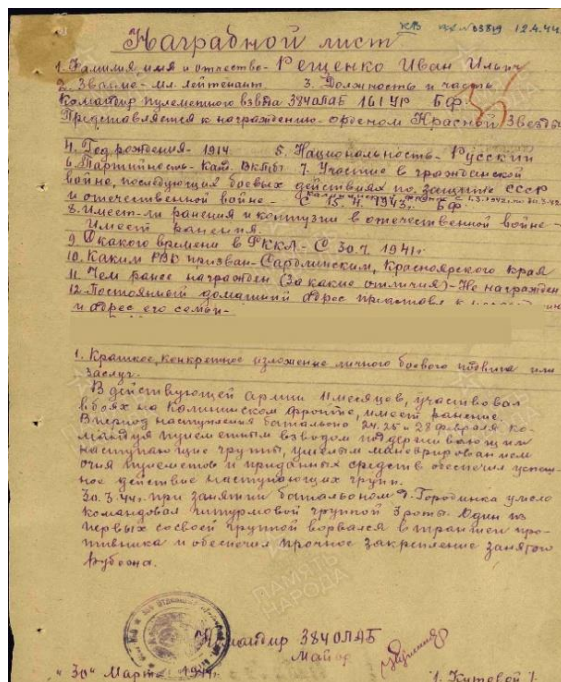 КВ вх№ 03819 12.4.44
Наградной лист
1. Фамилия имя и отчество - Рещенко Иван Ильич
2. Звание - мл. лейтенант 3. Должность и часть
Командир пулеметного взвода 384 ОПАБ 16 I УР БФ.
Представляется к награждению - орденом Красной Звезды
4. Год рождения - 1914 5. Национальность - Русский
6. Партийность - Кан. ВКП/б/ 7. Участие в гражданской
войне, последующих боевых действиях по защите СССР
и отечественной войне - С 13.4.1943г. БФ.
8. Имеет-ли ранения и контузии в отечественной войне -
Имеет ранения.
9. С какого времени в РККА - С 30.7. 1941г.
10. Каким РВК призван - Саралинским, Красноярского края
11. Чем ранее награжден (За какие отличия) - Не награжден
12. Постоянный домашний адрес представл. к
и адрес его семьи -
1. Краткое, конкретное изложение личного боевого подвига или
заслуг.
В действующей армии 11 месяцов, участвовал
в боях на Калининском фронте, имеет ранение.
В период наступления батальона 24. 25 - 28 февраля ко-
мандуя пулеметным взводом поддерживающим
наступающие группы, умелым маневрированием
огня пулеметов и приданных средств обеспечил успеш-
ное действие наступающих групп.
30. 3. 44г. при занятии батальоном д. Городинка умело
командовал штурмовой группой 3 роты. Один из
первых со своей группой ворвался в траншеи про-
тивника и обеспечил прочное закрепление занятого
рубежа.
ПАМЯТЬ
НАРОДА
Командир 384 ОПАБ
Майор
"30" Марта 1944г. /. Китовой /.